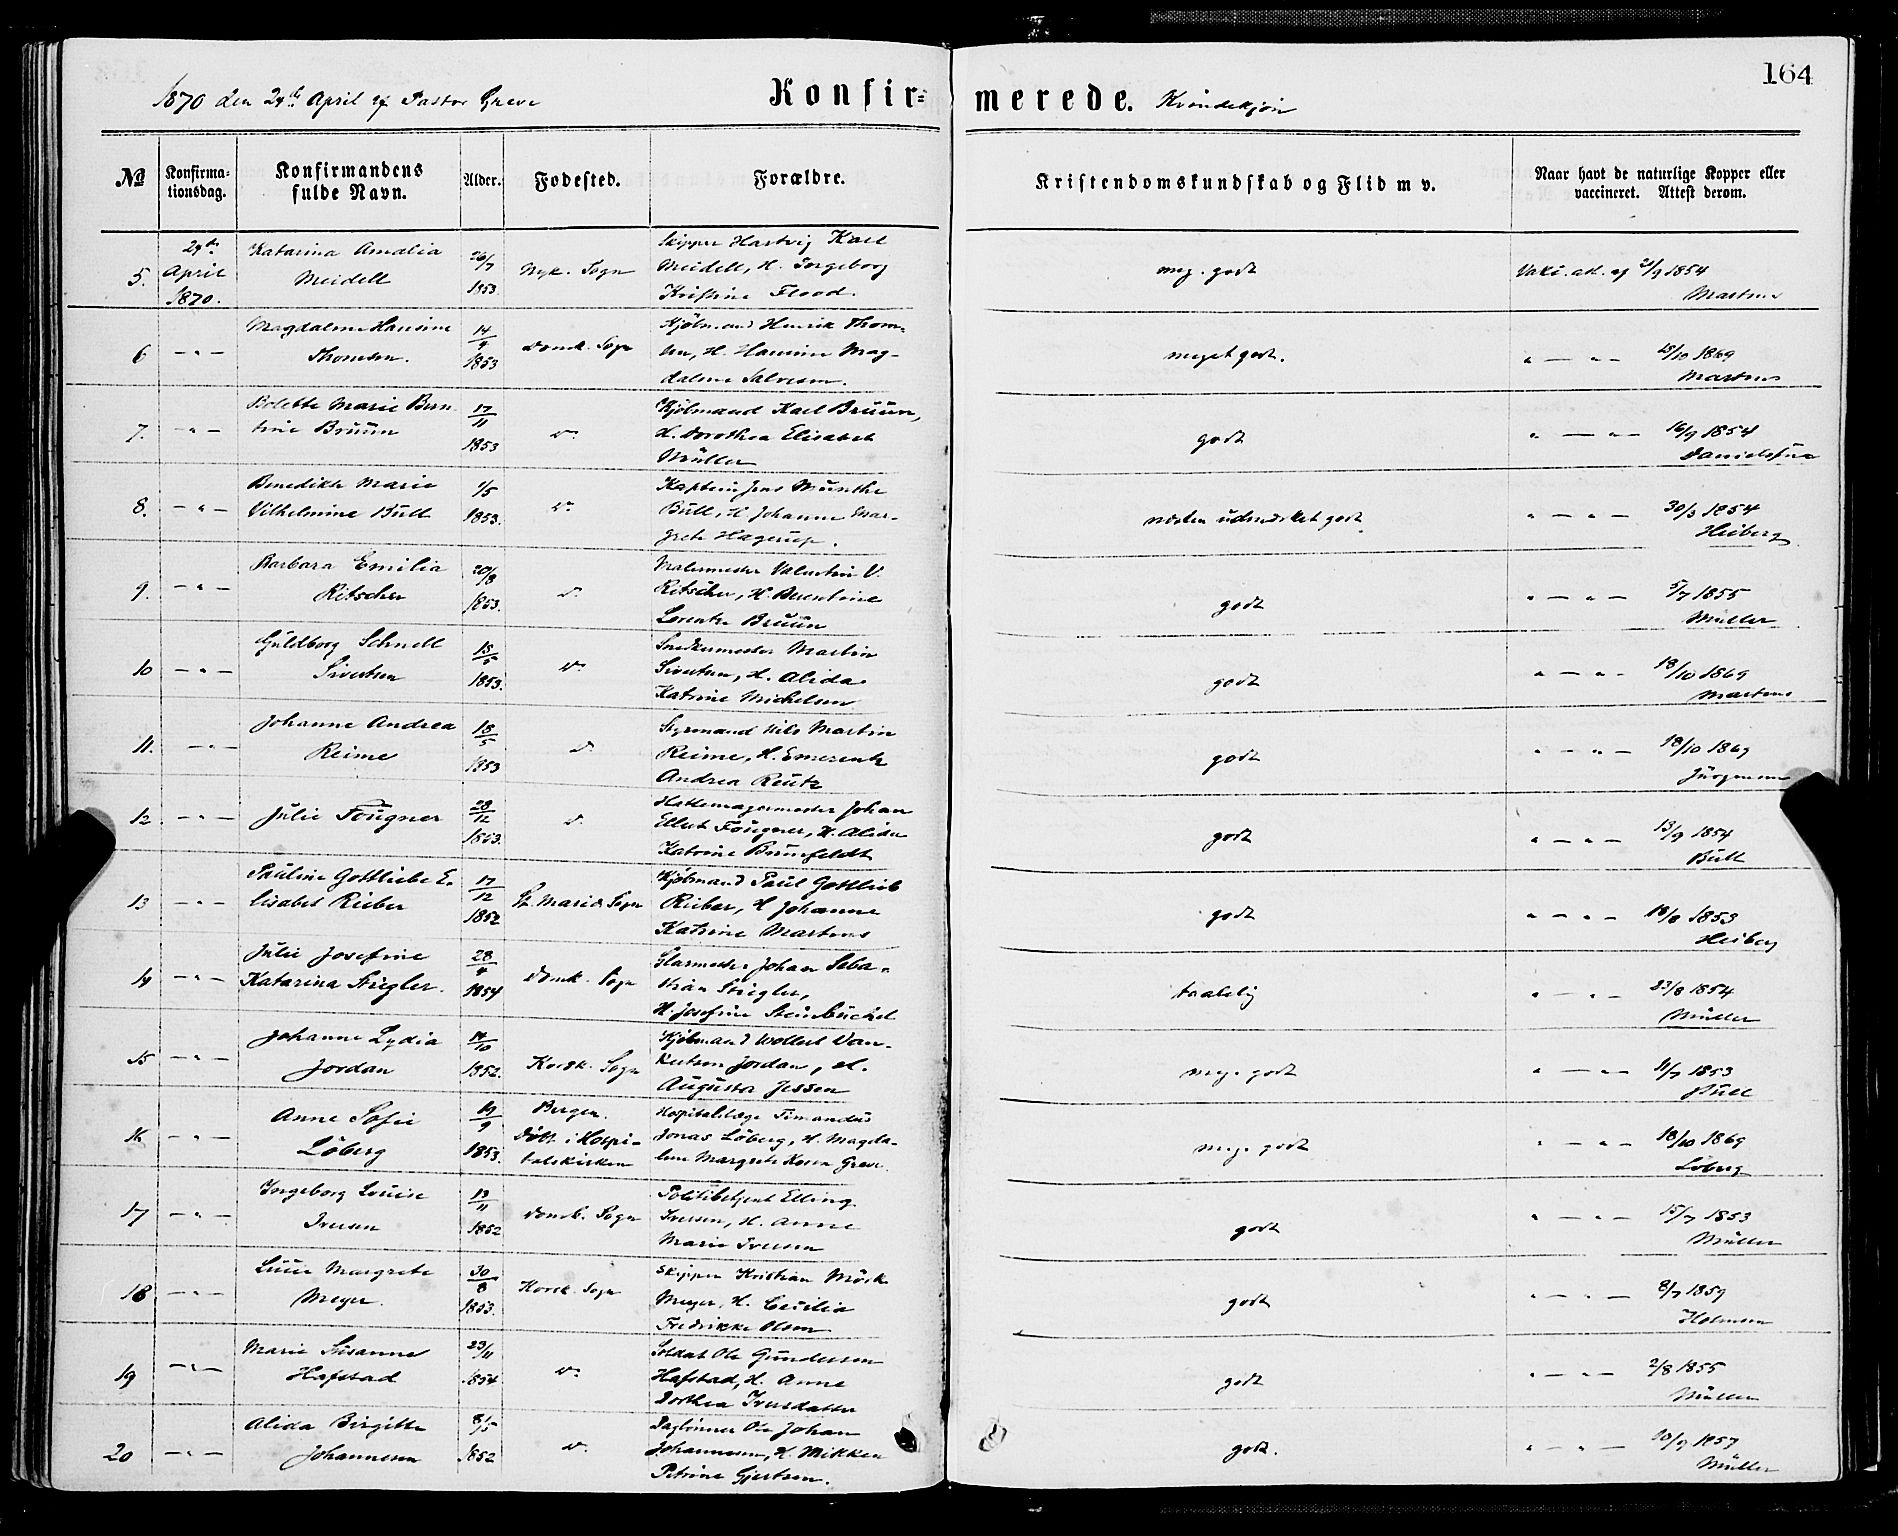 164
1870 den 24de April af Pastor Greve
Konfirmerede. Kvindekjøn
No
Konfirmationsdag.
Konfirmandens fulde Navn.
Alder.
Fødested.
Forældre.
Kristendomskundskab og Flid m v.
Naar havt de naturlige Kopper eller
vaccineret. Attest derom.
5. 24de April 1870. Katarina Amalia Meidell 26/7 1853. Nyk. Sogn Skipper Hartvig Kael Meidell, H. Ingeborg Kristine Flood. meg. godt Vakc. att. af 21/9 1854 Martens
6 — " — Magdalene Hansine Thomsen. 14/4 1853 Domk. Sogn Kjøbmand Henrik Thomsen, H. Hansine Magdalene Salvesen. meget godt. " — " — 18/10 1869 Martens
7. — " — Bolette Marie Berntine Bruun 17/11 1853 do Kjøbmand Karl Bruun, H. Dorothea Elisabet Müller godt " — " — 16/9 1854 Danielssen
8. — " — Benedikte Marie Vilhelmine Bull 1/5 1853. do Kaptein Jens Munthe Bull, H. Johanne Margrete Hagerup. næsten udmærket godt " — " — 30/3 1854 Heiberg
9. — " — Barbara Emilia Ritscher 20/8 1853. do Malermester Valentin V. Ritscher, H. Berentine Lorentze Bruun godt " — " — 5/7 1855 Müller
10 — " — Guldborg Schnell Sivertsen 15/5 1853. do Snedkermester Martin Sivertsen, H. Alida Katrine Michelsen godt " — " — 18/10 1869 Martens
11. — " — Johanne Andrea Reime 18/5 1853 do Styrmand Nils Martin Reime, H. Emerentze Andrea Reutz godt " — " — 18/10 1869 Jürgensen
12. — " — Julie Fougner 28/12 1853. do Hattemagermester Johan Ellert Fougner, H. Alida Katrine Brunfeldt godt " — " — 13/9 1854 Bull
13 — " — Pauline Gottliebe Elisabet Rieber 17/12 1852 St. Marie Sogn Kjøbmand Paul Gottlieb Rieber, H Johanne Katrine Martens godt " — " — 18/8 1853 Heiberg
14 — " — Julie Josefine Katarina Stiegler. 28/4 1854 Domk. Sogn Glarmester Johan Sebastian Stiegler, H. Josefine Steinbüchel taalelig " — " — 23/8 1854 Müller
15 — " — Johanne Lydia Jordan 14/10 1852. Korsk. Sogn Kjøbmand Wollert Danckertsen Jordan, H. Augusta Jessen meg. godt " — " — 11/7 1853 Bull
16 — " — Anne Sofie Löberg 19/9 1853. Bergen. Døbt i Hospitalskirken Hospitalslæge Timandus Jonas Löberg, H. Magdalene Margrete Rosa Greve. meg. godt " — " — 18/10 1869 Löberg
17 — " — Ingeborg Louise Iversen 13/11 1852 Domk. Sogn Politibetjent Elling Iversen, H. Anne Marie Iversen godt " — " — 15/7 1853 Müller
18 — " — Margrete Meyer. 30/8 1853. Korsk. Sogn Skipper Kristian Mörk Meyer, H. Cecilia Fredrikke Olsen godt " — " — 8/7 1859 Holmsen
19 — " — Marie Susanne Hafstad 23/11 1854 do Soldat Ole Gundersen Hafstad, H. Anne Dorthea Iversdatter godt " — " — 2/8 1855 Müller
20 — " — Alida Birgitte Johannesen 8/5 1852 do Daglønner Ole Johan Johannesen, H. Mikken Petrine Gjertsen. godt. " — " — 10/9 1857 Müller